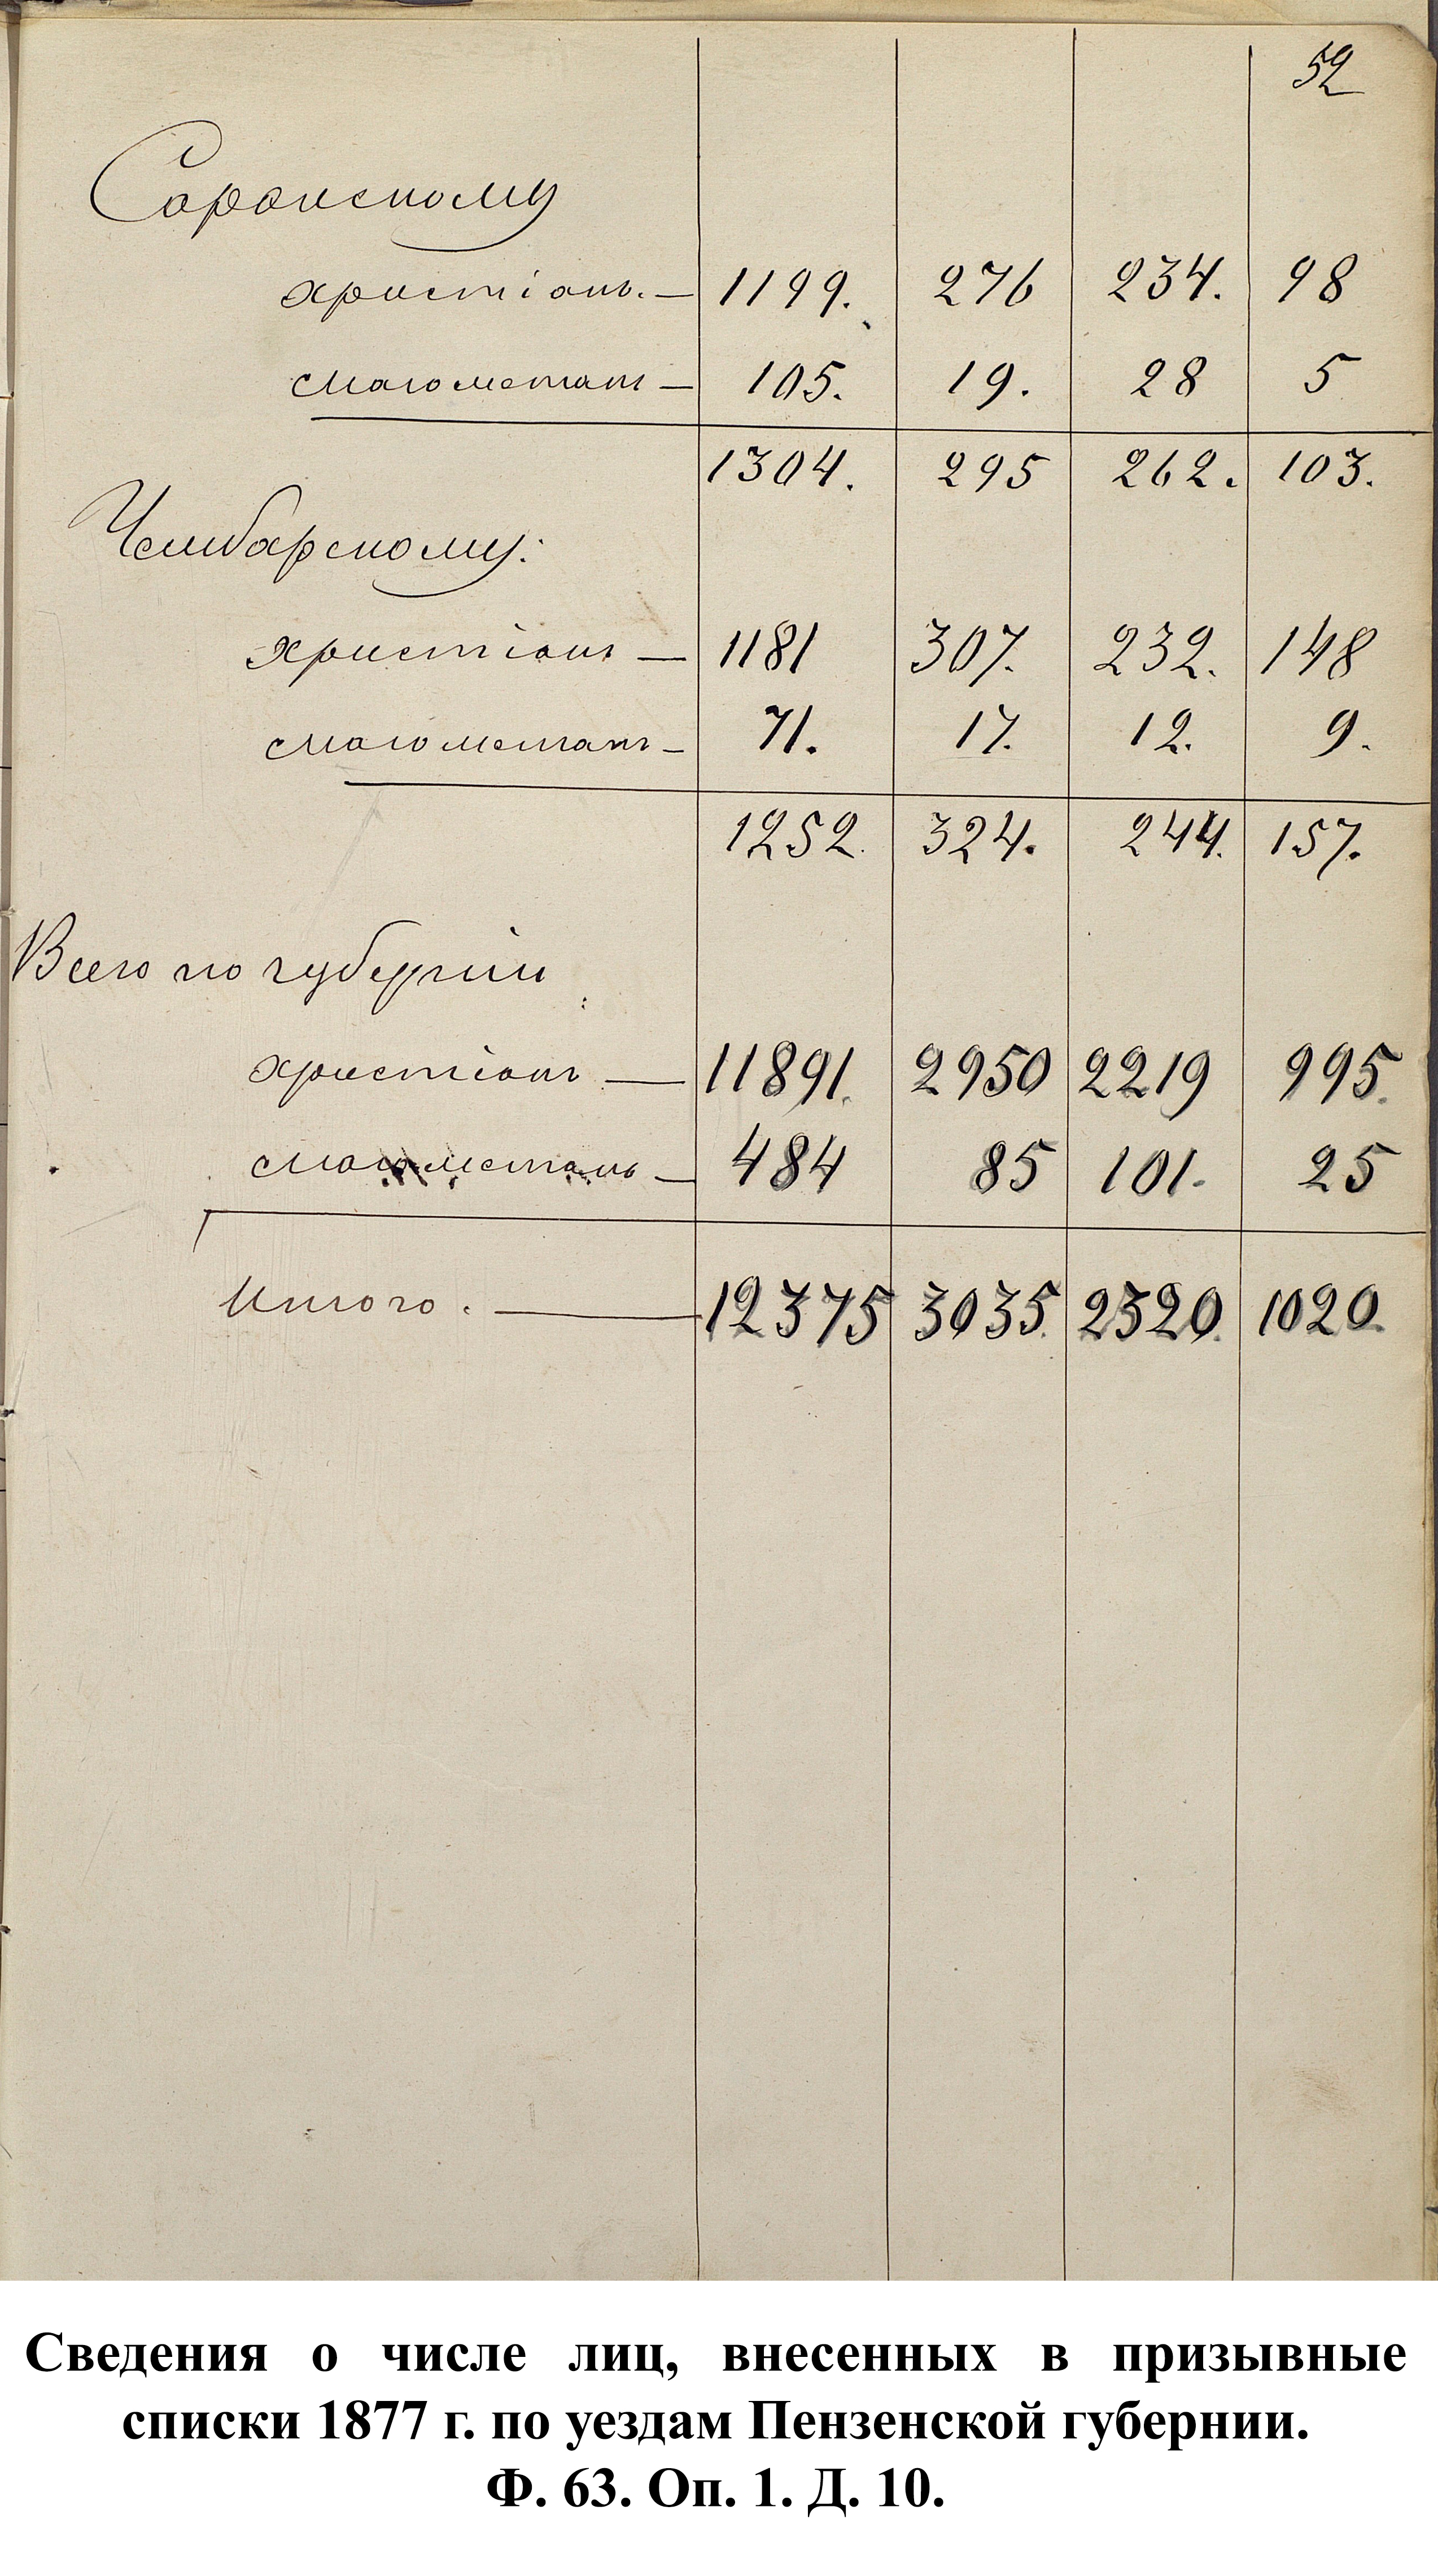 52
Саранскому
христіанъ. — 1199. 276 234. 98
магометанъ — 105. 19. 28 5
1304. 295 262. 103.
Чембарскому:
христіанъ — 1181 307. 232. 148
магометанъ — 71. 17. 12. 9.
1252. 324. 244. 157.
Всего по губерніи:
христіанъ — 11891. 2950 2219 995.
магометанъ — 484 85 101. 25
Итого. — 12375 3035. 2320. 1020.
Сведения о числе лиц, внесенных в призывные
списки 1877 г. по уездам Пензенской губернии.
Ф. 63. Оп. 1. Д. 10.